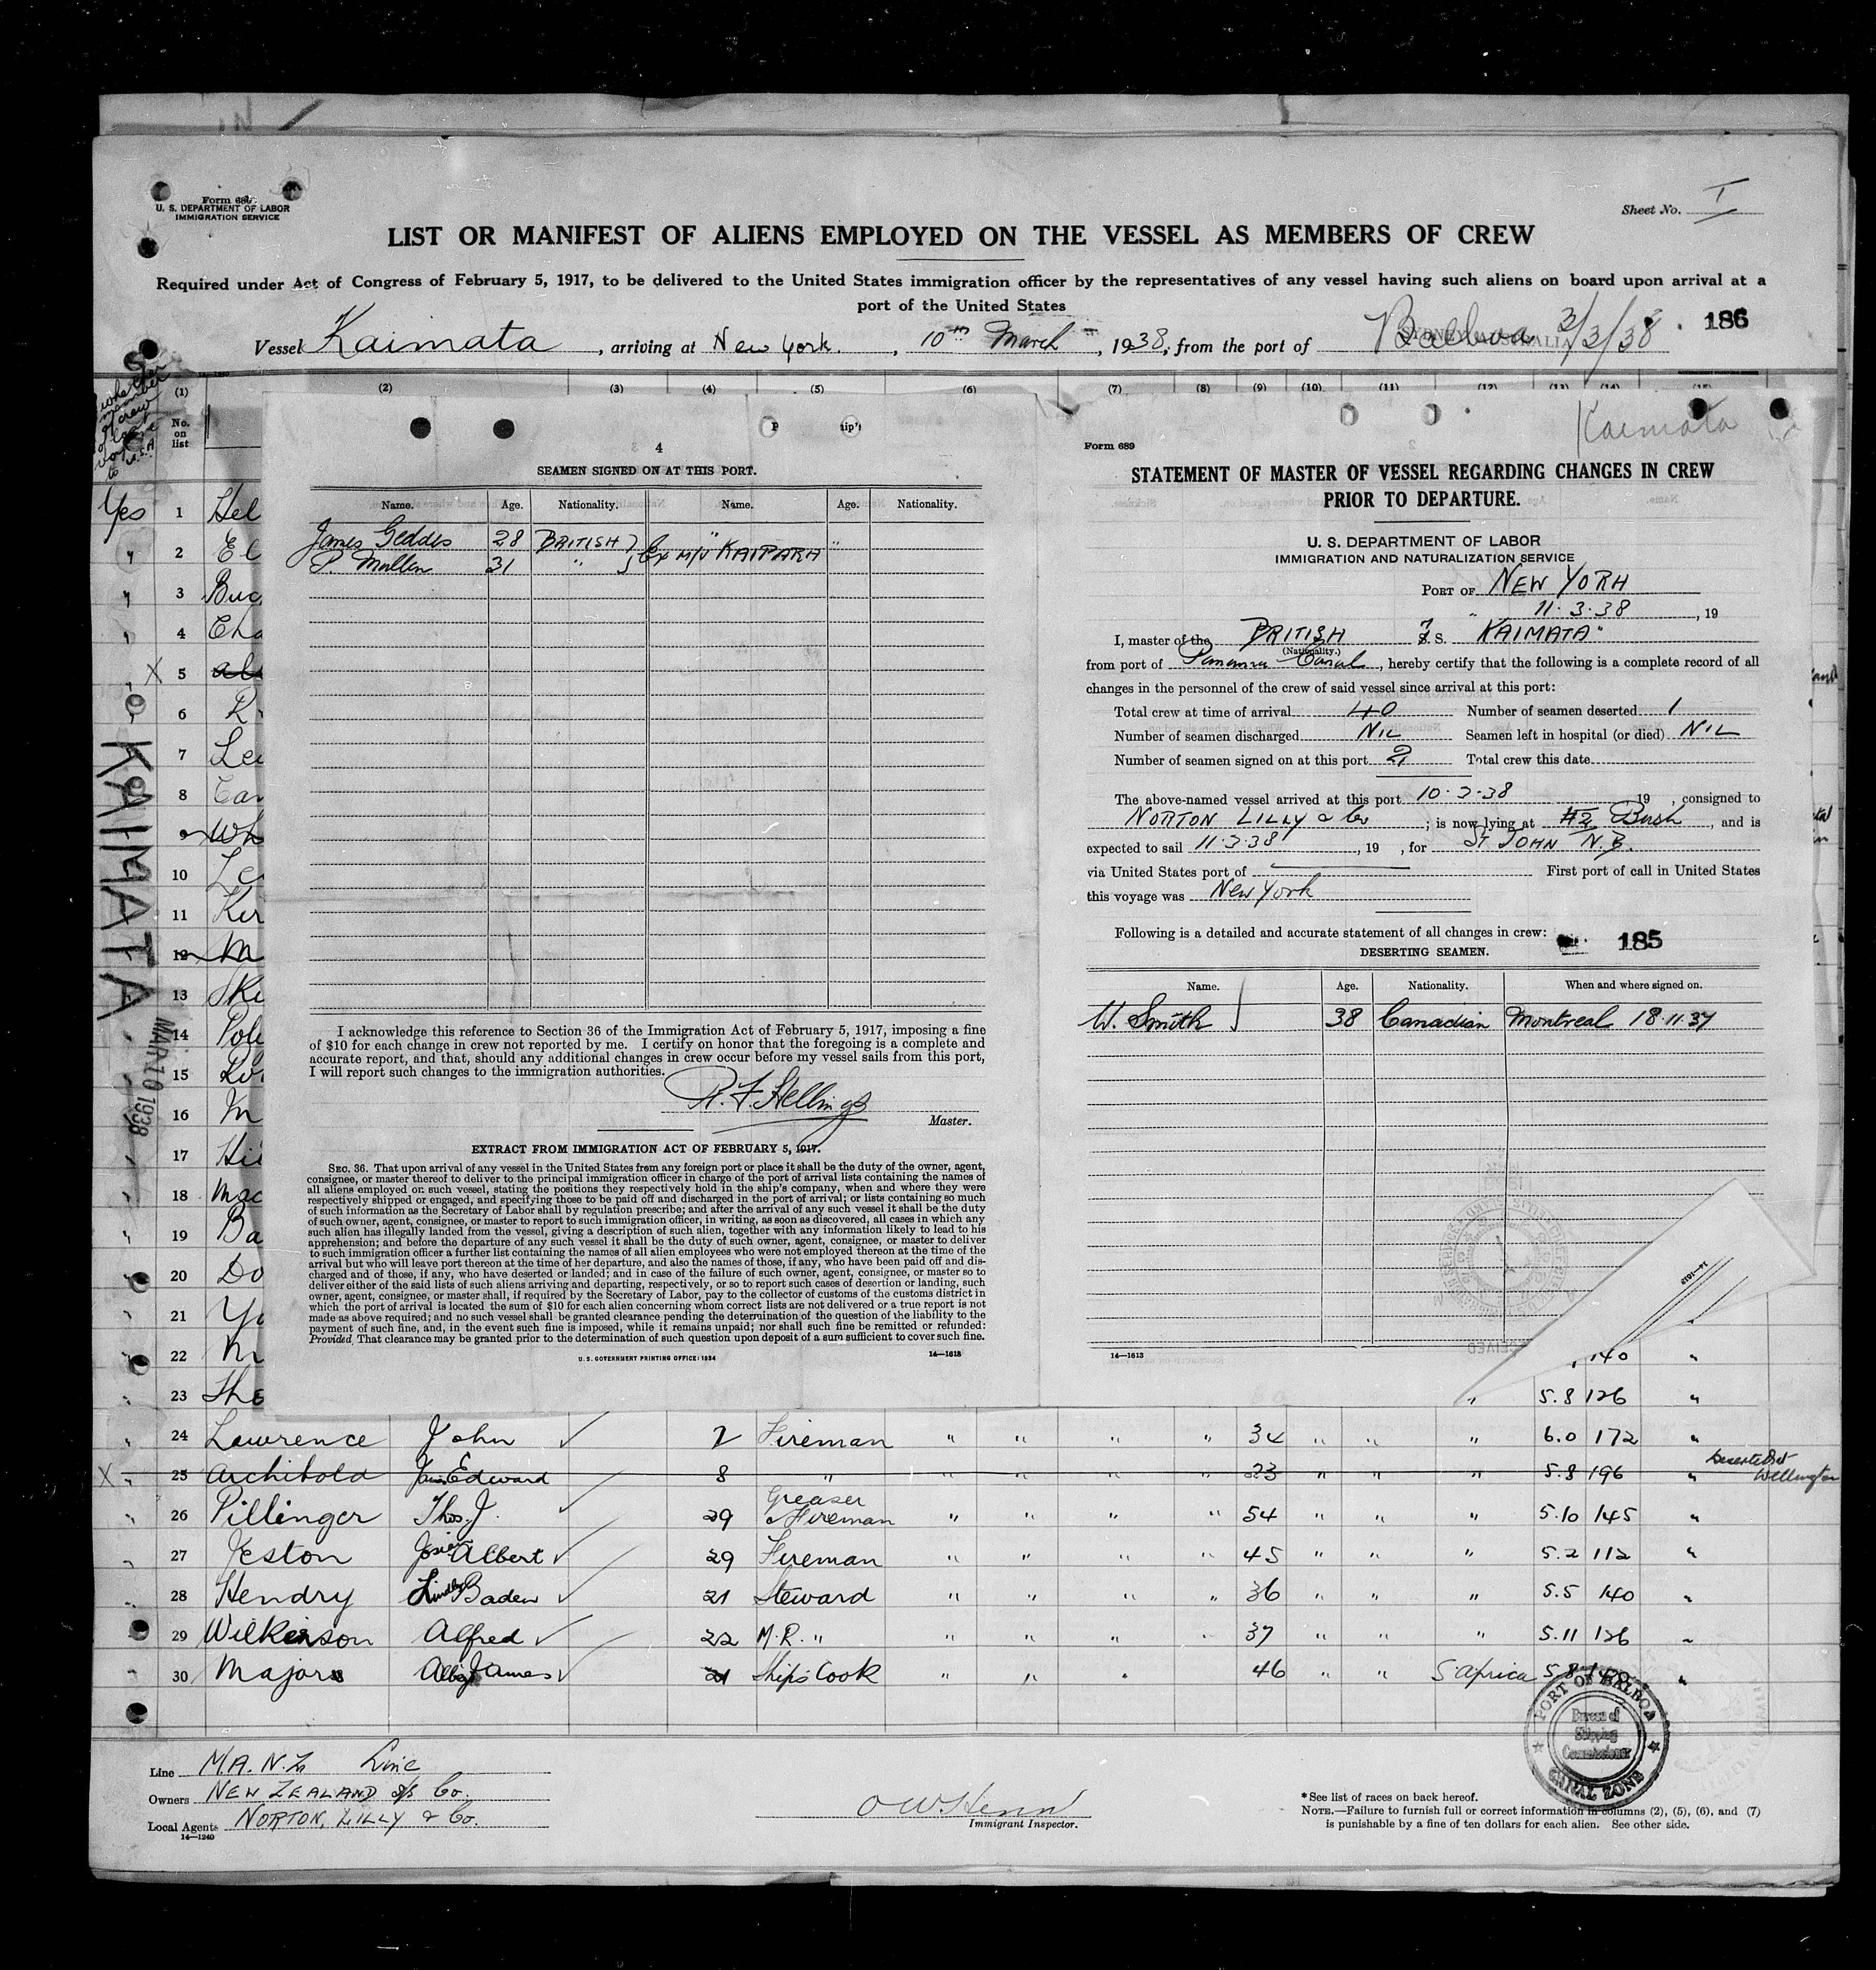 Form 680
U. S. DEPARTMENT OF LABOR
IMMIGRATION SERVICE
Sheet No. I
LIST OR MANIFEST OF ALIENS EMPLOYED ON THE VESSEL AS MEMBERS OF CREW
Required under Act of Congress of February 5, 1917, to be delivered to the United States immigration officer by the representatives of any vessel having such aliens on board upon arrival at a
port of the United States
Vessel Kaimata, arriving at New York., 10th March, 1938, from the port of Balboa 3/3/38. 186
(1) (2) (3) (4) (5) (6) (7) (8) (9) (10) (11) (12) (13) (14) (15)
No. on list
KAIMATA
MAR 10 1938
Yes 1 Hel
" 2 El
" 3 Buc
" 4 Cha
" X 5
6 R
7 Lei
8 Car
9 Wh
10 Le
11 Ker
12 M
13 Ski
14 Pole
15
16 M
17 Hil
18 Mac
19 Ba
20 Do
21 Yo
22 M
23 The
4
SEAMEN SIGNED ON AT THIS PORT.
Name. Age. Nationality. Name. Age. Nationality.
James Geddes 28 BRITISH } Ex M/V "KAIPARA"
P. Mullen 31 " }
I acknowledge this reference to Section 36 of the Immigration Act of February 5, 1917, imposing a fine
of $10 for each change in crew not reported by me. I certify on honor that the foregoing is a complete and
accurate report, and that, should any additional changes in crew occur before my vessel sails from this port,
I will report such changes to the immigration authorities.
Master.
EXTRACT FROM IMMIGRATION ACT OF FEBRUARY 5, 1917.
SEC. 36. That upon arrival of any vessel in the United States from any foreign port or place it shall be the duty of the owner, agent,
consignee, or master thereof to deliver to the principal immigration officer in charge of the port of arrival lists containing the names of
all aliens employed on such vessel, stating the positions they respectively hold in the ship's company, when and where they were
respectively shipped or engaged, and specifying those to be paid off and discharged in the port of arrival; or lists containing so much
of such information as the Secretary of Labor shall by regulation prescribe; and after the arrival of any such vessel it shall be the duty
of such owner, agent, consignee, or master to report to such immigration officer, in writing, as soon as discovered, all cases in which any
such alien has illegally landed from the vessel, giving a description of such alien, together with any information likely to lead to his
apprehension; and before the departure of any such vessel it shall be the duty of such owner, agent, consignee, or master to deliver
to such immigration officer a further list containing the names of all alien employees who were not employed thereon at the time of the
arrival but who will leave port thereon at the time of her departure, and also the names of those, if any, who have been paid off and dis-
charged and of those, if any, who have deserted or landed; and in case of the failure of such owner, agent, consignee, or master so to
deliver either of the said lists of such aliens arriving and departing, respectively, or so to report such cases of desertion or landing, such
owner, agent, consignee, or master shall, if required by the Secretary of Labor, pay to the collector of customs of the customs district in
which the port of arrival is located the sum of $10 for each alien concerning whom correct lists are not delivered or a true report is not
made as above required; and no such vessel shall be granted clearance pending the determination of the question of the liability to the
payment of such fine, and, in the event such fine is imposed, while it remains unpaid; nor shall such fine be remitted or refunded:
Provided, That clearance may be granted prior to the determination of such question upon deposit of a sum sufficient to cover such fine.
U. S. GOVERNMENT PRINTING OFFICE: 1934 14—1613
Kaimata
Form 689
STATEMENT OF MASTER OF VESSEL REGARDING CHANGES IN CREW
PRIOR TO DEPARTURE.
U. S. DEPARTMENT OF LABOR
IMMIGRATION AND NATURALIZATION SERVICE
PORT OF NEW YORK
11·3·38, 19
I, master of the BRITISH S. S. KAIMATA"
(Nationality.)
from port of Panama Canal, hereby certify that the following is a complete record of all
changes in the personnel of the crew of said vessel since arrival at this port:
Total crew at time of arrival 40 Number of seamen deserted 1
Number of seamen discharged NIL Seamen left in hospital (or died) NIL
Number of seamen signed on at this port 2 Total crew this date
The above-named vessel arrived at this port 10·3·38, 19 , consigned to
NORTON LILLY & Co; is now lying at #2 Bush, and is
expected to sail 11·3·38, 19 , for ST JOHN N.B.
via United States port of First port of call in United States
this voyage was New York
Following is a detailed and accurate statement of all changes in crew:
185
DESERTING SEAMEN.
Name. Age. Nationality. When and where signed on.
W. Smith 38 Canadian Montreal 18·11·37
14—1613
14—1613
140 "
" 5.8 126 "
24 Lawrence John ✓ 2 Fireman " " " " 34 " " " 6.0 172 "
X 25 Archibold Edward 8 " " " " " 23 " " " 5.8 196 " Deserted at Wellington
26 Pillinger Thos. J. 29 Greaser & Fireman " " " " 54 " " " 5.10 145 "
27 Jeston Albert ✓ 29 Fireman " " " " 45 " " " 5.2 112 "
28 Hendry Baden ✓ 21 Steward " " " " 36 " " " 5.5 140 "
29 Wilkinson Alfred ✓ 22 M.R. " " " " " 37 " " " 5.11 126 "
30 Majors James ✓ 21 Ships Cook " " " 46 " " S Africa 5.8 "
PORT OF BALBOA
Bureau of
Shipping
Commissioner
CANAL ZONE
Line M.A.N.Z. Line
Owners NEW ZEALAND S/S Co.
Local Agents NORTON, LILLY & Co.
14—1240
Immigrant Inspector.
* See list of races on back hereof.
NOTE.—Failure to furnish full or correct information in columns (2), (5), (6), and (7)
is punishable by a fine of ten dollars for each alien. See other side.